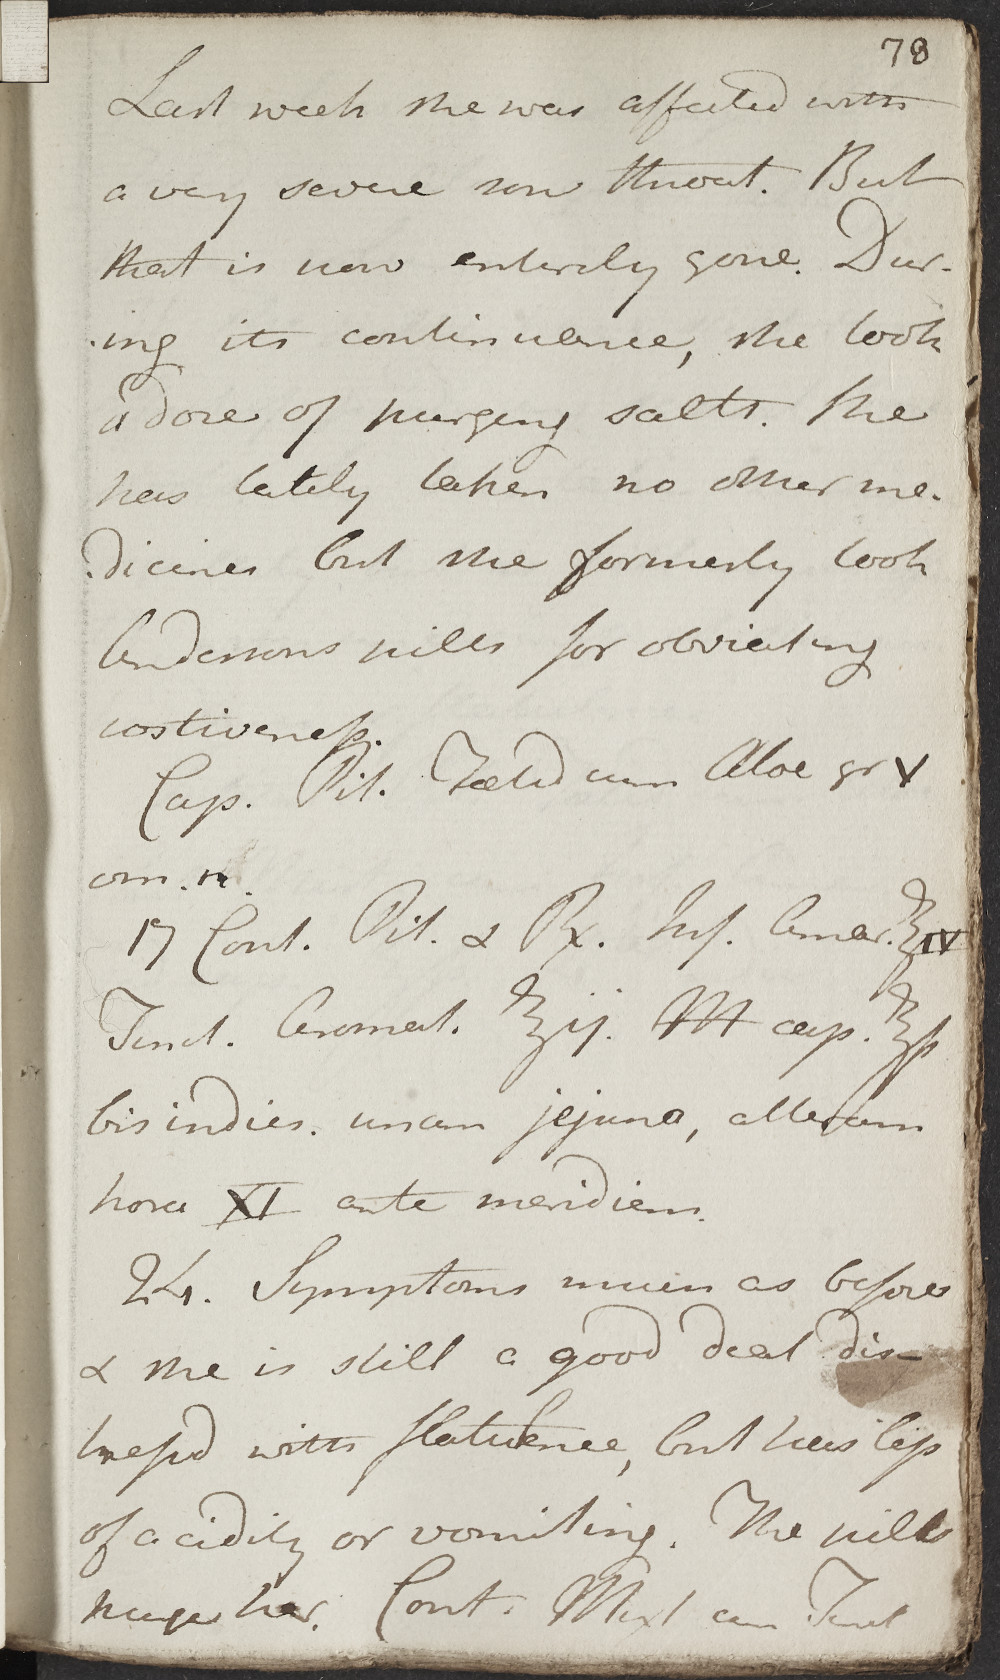 78
Last week she was affected with
a very severe sore throat. But
that is now entirely gone. Dur-
ing its continuance, she took
a dose of purging salts. She
has lately taken no other me-
dicines but she formerly took
Andersons pills for obviating
costiveness.
Cap. Pil. Fœtid cum Aloe gr V
om. n.
17 Cont. Pil. & Rx. Inf. Amar. ℥IV
Tinct. Aromat. ℥ij. M cap. ℥ſs
bis indies. unam jejuno, alteram
hora XI ante meridiem.
24. Symptoms much as before
& she is still a good deal dis-
tressd with flatulence, but has less
of acidity or vomiting. The pills
purge her. Cont. Mixt cum Tinct